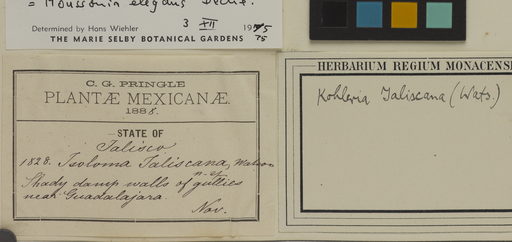 = Moussonia elegans Decne.
Determined by Hans Wiehler 3 XII 1975
THE MARIE SELBY BOTANICAL GARDENS 75
C. G. PRINGLE
PLANTÆ MEXICANÆ.
1888.
STATE OF
Jalisco
1828. Isoloma Jaliscana, Watson
n. sp.
Shady damp walls of gullies
near Guadalajara.
Nov.
HERBARIUM REGIUM MONACENS
Kohleria Jaliscana (Wats.)